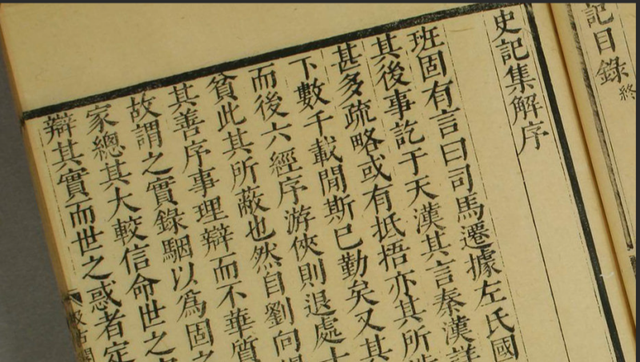 記目錄終
史記集解序
班固有言曰司馬遷據左氏國
其後事訖于天漢其言秦漢詳
甚多疏略或有抵捂亦其所
下數千載間斯已勤矣又其
而後六經序游俠則退處士
貧此其所蔽也然自劉向
其善序事理辯而不華質
故謂之實錄駰以爲固之
家總其大較信命世之
辯其實而世之惑者定